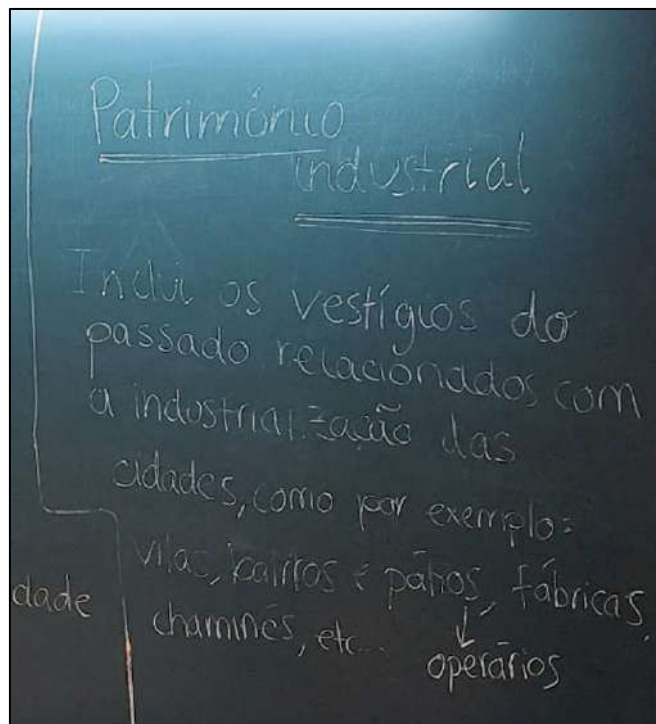 Património
industrial
Inclui os vestígios do
passado relacionados com
a industrialização das
cidades, como por exemplo:
vilas, bairros e pátios, fábricas,
chaminés, etc...
operários
dade